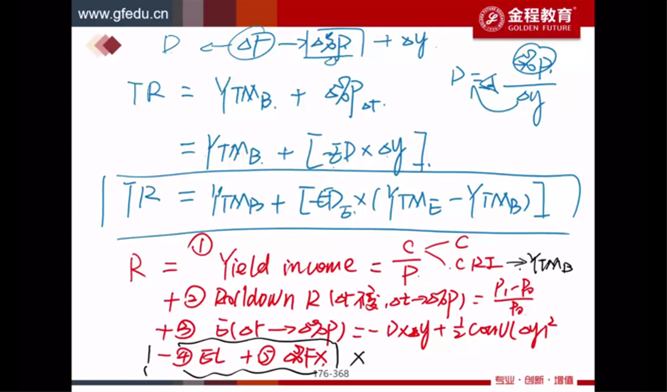 www.gfedu.cn
金程教育
GOLDEN FUTURE
D ← ΔF → Δ%P + Δy
D = Δ%P / Δy
TR = YTM_B + Δ%P_Δt
= YTM_B + [-ED × Δy]
TR = YTM_B + [-ED_E × (YTM_E - YTM_B)]
R = ① Yield income = C/P < C
CRI → YTM_B
+ ② Rolldown R (Δt, Δt→Δ%P) = (P₁ - P₀)/P₀
+ ③ E(Δr → Δ%P) = -D×Δy + ½ Conv(Δy)²
- ④ EL + ⑤ Δ%FX ×
176-368
专业·创新·增值